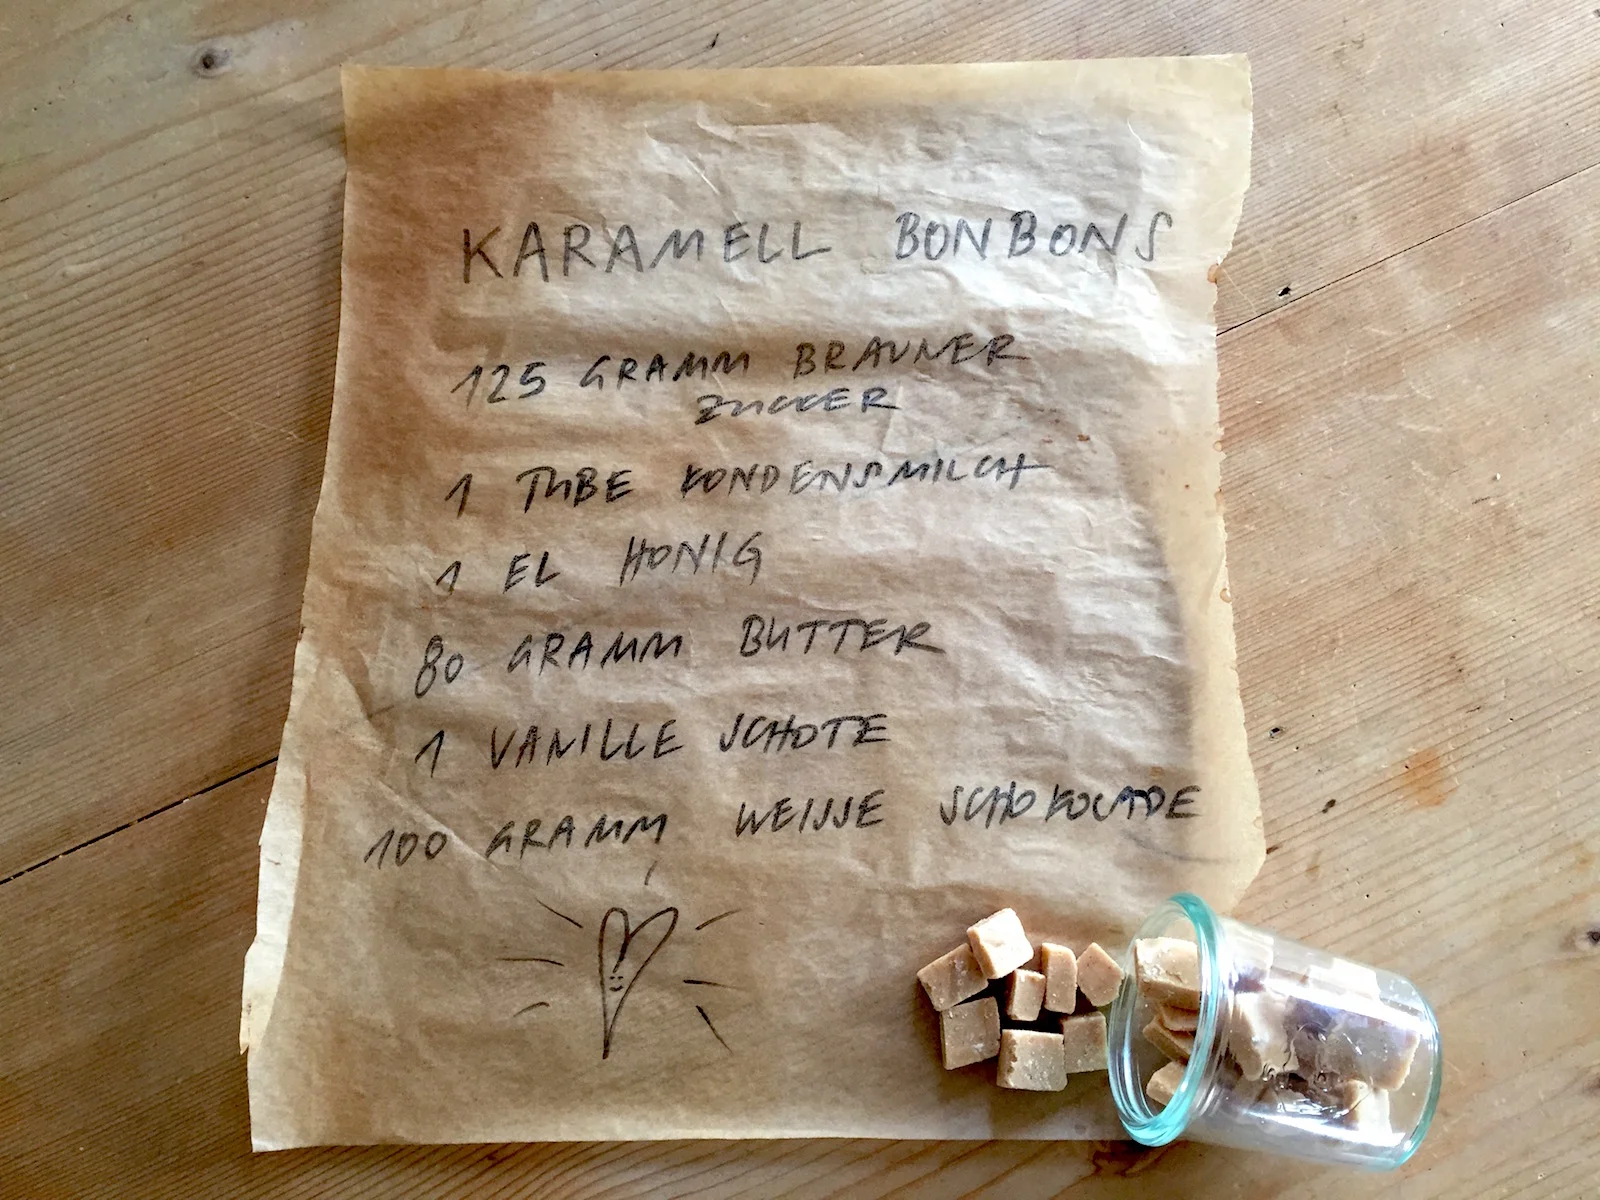 KARAMELL BONBONS
125 GRAMM BRAUNER
ZUCKER
1 TUBE KONDENSMILCH
1 EL HONIG
80 GRAMM BUTTER
1 VANILLE SCHOTE
100 GRAMM WEISSE SCHOKOLADE